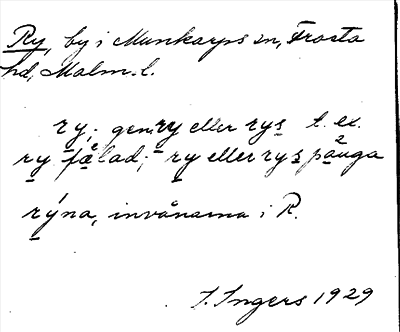 Ry, by i Munkarps sn, Frosta
hd, Malm. l.
ry; gen. ry eller rys t. ex.
ry fælad; ry eller rys pånga
rýna, invånarna i R.
I. Ingers 1929